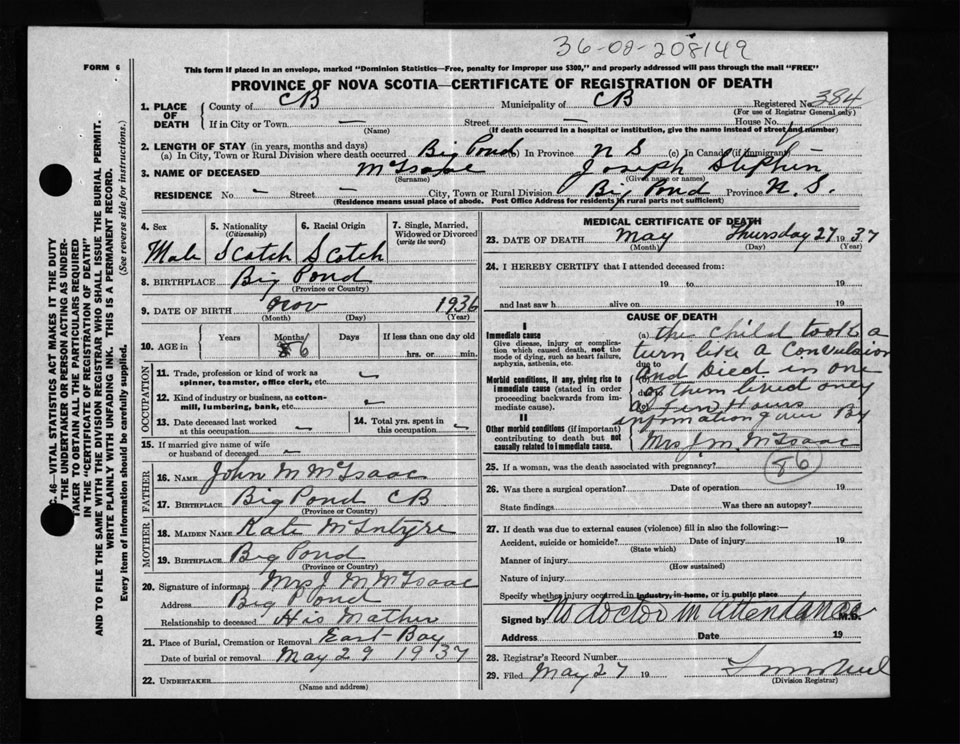 36-02-208149
FORM 6
This form if placed in an envelope, marked "Dominion Statistics—Free, penalty for improper use $300," and properly addressed will pass through the mail "FREE"
PROVINCE OF NOVA SCOTIA—CERTIFICATE OF REGISTRATION OF DEATH
1. PLACE OF DEATH
County of CB Municipality of CB Registered No. 384
(For use of Registrar General only)
If in City or Town — Street — House No.
(Name) (If death occurred in a hospital or institution, give the name instead of street and number)
2. LENGTH OF STAY (in years, months and days)
(a) In City, Town or Rural Division where death occurred Big Pond (b) In Province N S (c) In Canada (if immigrant)
3. NAME OF DECEASED McIsaac Joseph Stephen
(Surname) (Given name or names)
RESIDENCE No. - Street - City, Town or Rural Division Big Pond Province N. S.
(Residence means usual place of abode. Post Office Address for residents in rural parts not sufficient)
4. Sex 5. Nationality (Citizenship) 6. Racial Origin 7. Single, Married, Widowed or Divorced (write the word)
Male Scotch Scotch
8. BIRTHPLACE Big Pond
(Province or Country)
9. DATE OF BIRTH Nov 1936
(Month) (Day) (Year)
10. AGE in Years Months Days If less than one day old
6 hrs. or min.
OCCUPATION
11. Trade, profession or kind of work as spinner, teamster, office clerk, etc.
12. Kind of industry or business, as cotton-mill, lumbering, bank, etc.
13. Date deceased last worked at this occupation 14. Total yrs. spent in this occupation
15. If married give name of wife or husband of deceased
FATHER
16. NAME John M McIsaac
17. BIRTHPLACE Big Pond CB
(Province or Country)
MOTHER
18. MAIDEN NAME Kate McIntyre
19. BIRTHPLACE Big Pond
(Province or Country)
20. Signature of informant Mrs J M McIsaac
Address Big Pond
Relationship to deceased His Mother
21. Place of Burial, Cremation or Removal East Bay
Date of burial or removal May 29 1937
22. UNDERTAKER
(Name and address)
MEDICAL CERTIFICATE OF DEATH
23. DATE OF DEATH May Thursday 27 1937
(Month) (Day) (Year)
24. I HEREBY CERTIFY that I attended deceased from:
19 to 19
and last saw h alive on 19
CAUSE OF DEATH
I
Immediate cause
Give disease, injury or complication which caused death, not the mode of dying, such as heart failure, asphyxia, asthenia, etc.
Morbid conditions, if any, giving rise to immediate cause (stated in order proceeding backwards from immediate cause).
II
Other morbid conditions (if important) contributing to death but not causally related to immediate cause.
(a) the child took a
turn like a Convulsion
due to
and Died in one
of them lived only
a few Hours
information given By
Mrs J M McIsaac
86
25. If a woman, was the death associated with pregnancy?
26. Was there a surgical operation? Date of operation 19
State findings Was there an autopsy?
27. If death was due to external causes (violence) fill in also the following:—
Accident, suicide or homicide? Date of injury 19
(State which)
Manner of injury
(How sustained)
Nature of injury
Specify whether injury occurred in industry, in home, or in public place
Signed by No doctor in attendance M.D.
Address Date 19
28. Registrar's Record Number
29. Filed May 27 19
(Division Registrar)
c. 46—VITAL STATISTICS ACT MAKES IT THE DUTY
OF THE UNDERTAKER OR PERSON ACTING AS UNDERTAKER TO OBTAIN ALL THE PARTICULARS REQUIRED
IN THE "CERTIFICATE OF REGISTRATION OF DEATH"
AND TO FILE THE SAME WITH THE DIVISION REGISTRAR WHO SHALL ISSUE THE BURIAL PERMIT.
WRITE PLAINLY WITH UNFADING INK. THIS IS A PERMANENT RECORD.
Every item of information should be carefully supplied. (See reverse side for instructions.)